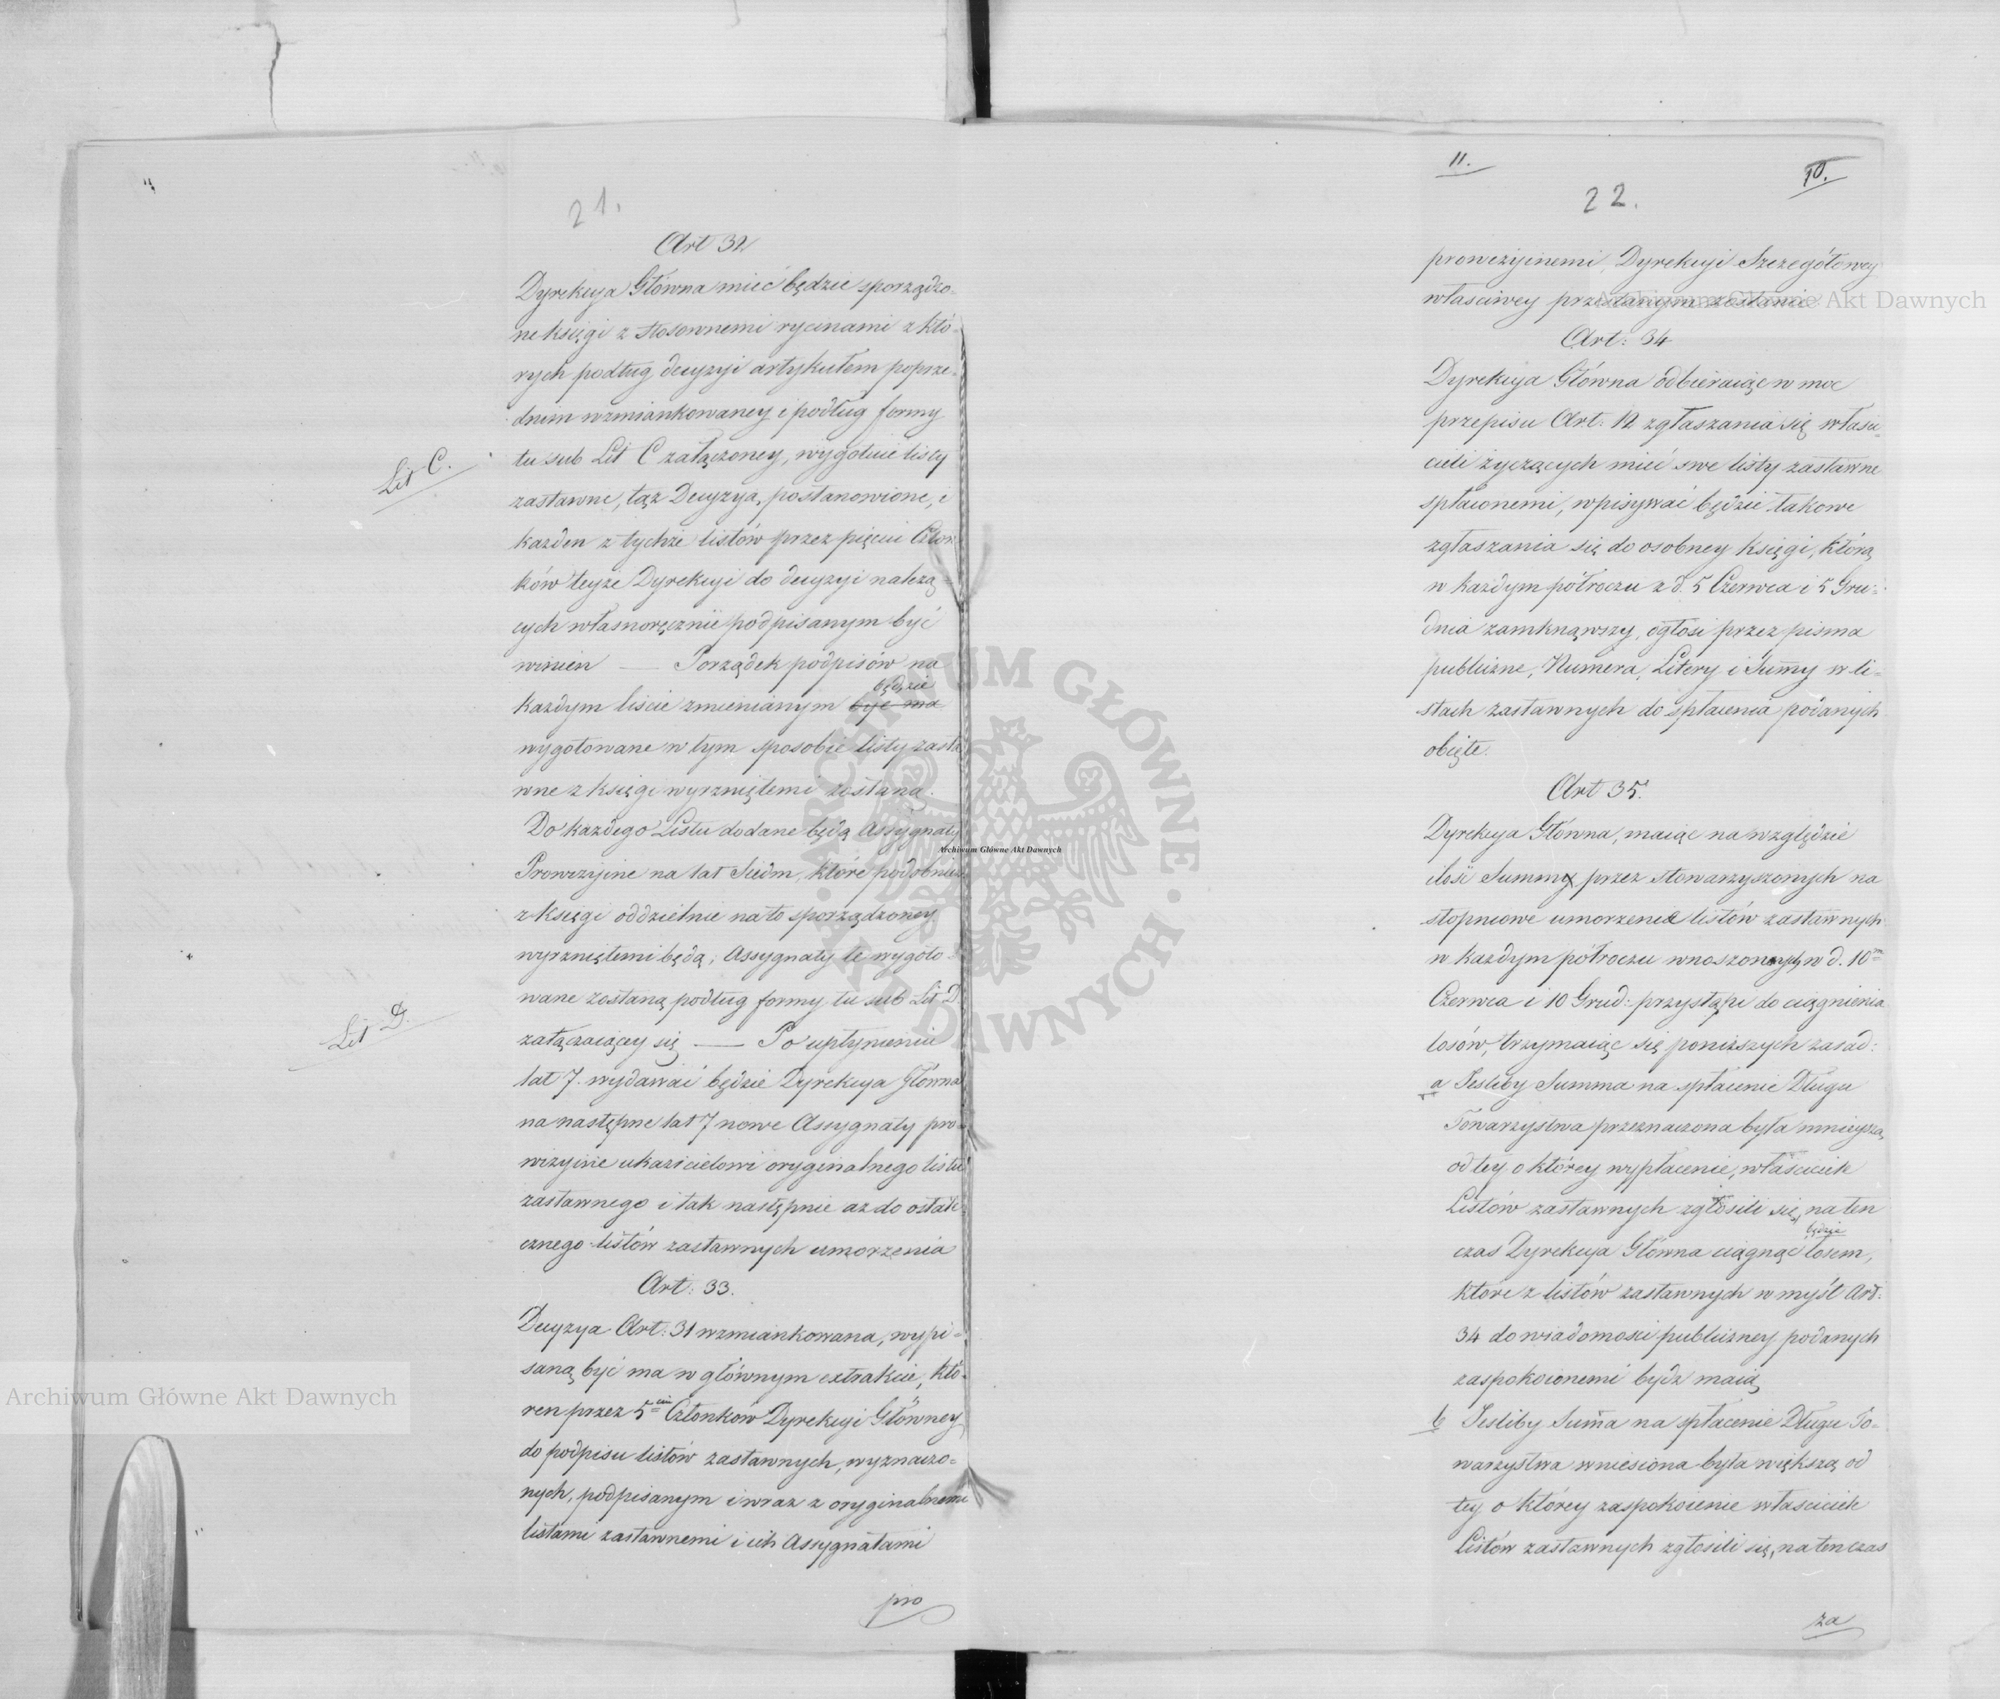 21.
Art 32
Dyrekcya Główna mieć będzie sporządzo-
ne księgi z stosownemi rycinami z któ-
rych podług decyzyi artykułem poprze-
dnim wzmiankowaney i podług formy
Lit C.
tu sub Lit C załączoney, wygotuie listy
zastawne, tąż Decyzyą, postanowione, i
każden z tychże listów przez pięciu Człon
ków teyże Dyrekcyi do decyzyi należą=
cych własnoręcznie podpisanym być
winien — Porządek podpisów na
będzie
każdym liście zmienianym być ma
wygotowane w tym sposobie listy zasta
wne z księgi wyrzniętemi zostaną.
Do każdego Listu dodane będą Assygnaty
Prowizyine na lat Siedm, które podobnież
z księgi oddzielnie na to sporządzoney
wyrzniętemi będą, Assygnaty te wygoto-
wane zostaną podług formy tu sub Lit D
Lit D.
załączaiącey się — Po upłynieniu
lat 7. wydawać będzie Dyrekcya Główna
na następne lat 7 nowe Assygnaty pro-
wizyine ukazicielowi oryginalnego listu
zastawnego i tak następnie aż do ostate-
cznego listów zastawnych umorzenia
Art: 33.
Decyzya Art: 31 wzmiankowana, wypi=
saną być ma w głównym extrakcie, któ-
ren przez 5ciu Członków Dyrekcyi Główney
do podpisu listów zastawnych, wyznaczo=
nych, podpisanym i wraz z oryginalnemi
listami zastawnemi i ich Assygnatami
pro
11.
10.
22.
prowizyinemi, Dyrekcyi Szczegółowey
właściwey przesłanym zostanie
Art: 34
Dyrekcya Główna odbieraiąc w moc
przepisu Art: 12 zgłaszania się właści-
cieli życzących mieć swe listy zastawne
spłaconemi, wpisywać będzie takowe
zgłaszania się do osobney księgi, którą
w każdym półroczu z d. 5 Czerwca i 5 Gru=
dnia zamknąwszy, ogłosi przez pisma
publiczne, Numera, Litery i Summy w li-
stach zastawnych do spłacenia podanych
obięte.
Art 35.
Dyrekcya Główna, maiąc na względzie
ilość Summy przez stowarzyszonych na
stopniowe umorzenie listów zastawnych
w każdym półroczu wnoszonych w d. 10m
Czerwca i 10 Grud: przystąpi do ciągnienia
losów, trzymaiąc się poniższych zasad:
a Jesliby Summa na spłacenie Długu
Towarzystwa przeznaczona była mnieyszą,
od tey o którey wypłacenie, właściciele
Listów zastawnych zgłosili się, na ten
będzie
czas Dyrekcya Główna ciągnąć losem,
które z listów zastawnych w myśl Art:
34 do wiadomości publiczney podanych
zaspokoionemi bydź maią
b Jesliby Suma na spłacenie Długu To-
warzystwa wniesiona była większą od
tey o którey zaspokoienie właściciele
Listów zastawnych zgłosili się, na ten czas
za
Archiwum Główne Akt Dawnych
Archiwum Główne Akt Dawnych
Archiwum Główne Akt Dawnych
ARCHIWUM GŁÓWNE AKT DAWNYCH